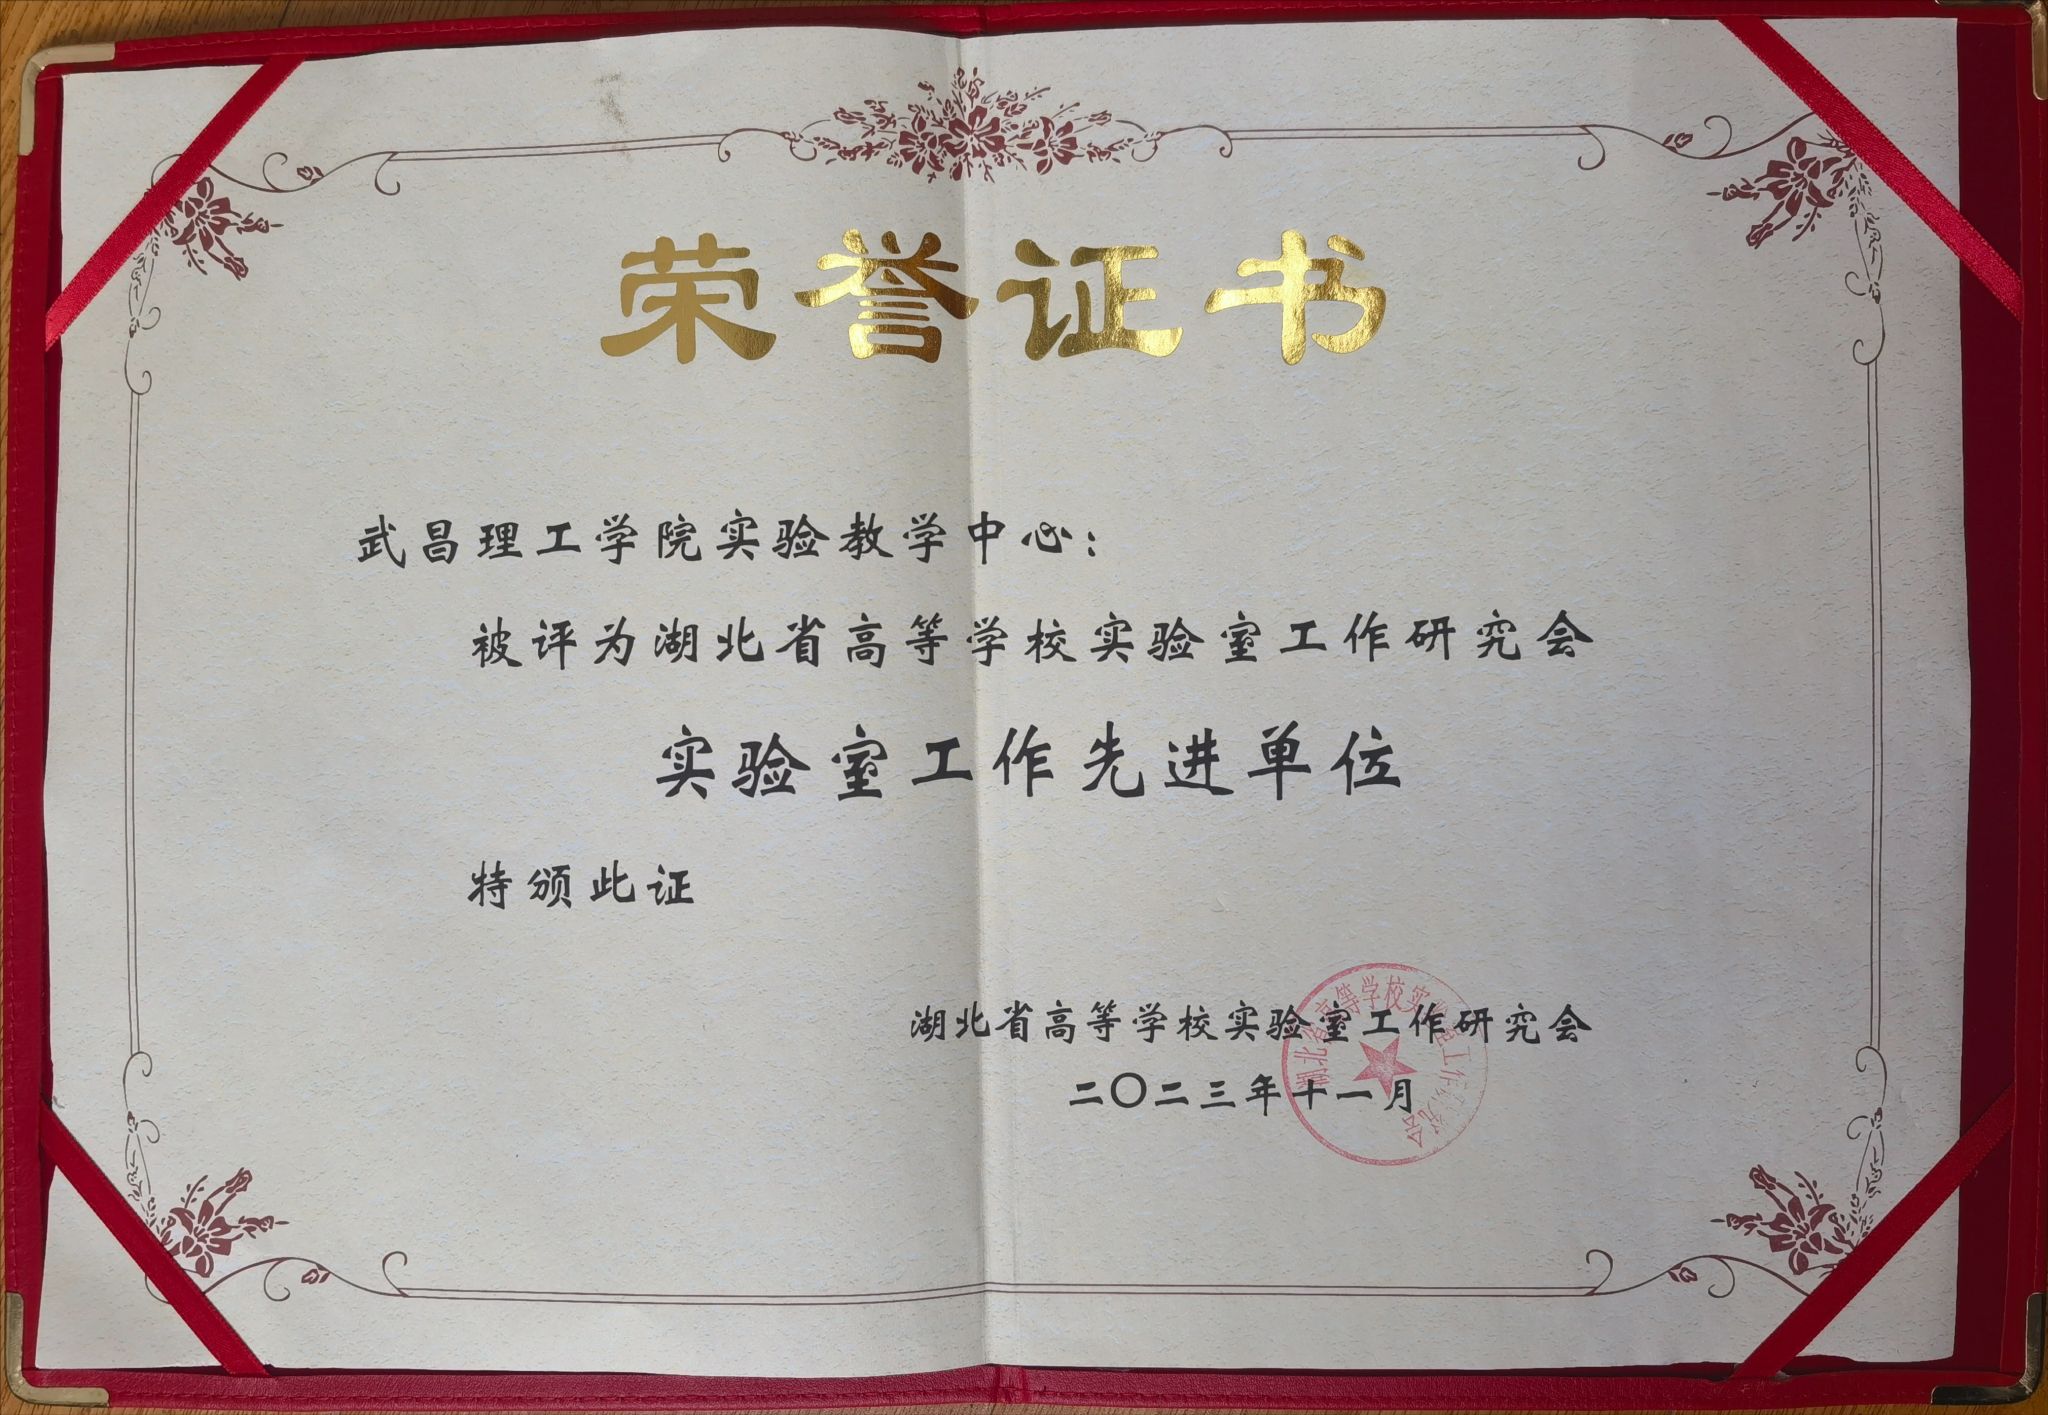 荣誉证书
武昌理工学院实验教学中心：
被评为湖北省高等学校实验室工作研究会
实验室工作先进单位
特颁此证
湖北省高等学校实验室工作研究会
二〇二三年十一月
湖北省高等学校实验室工作研究会